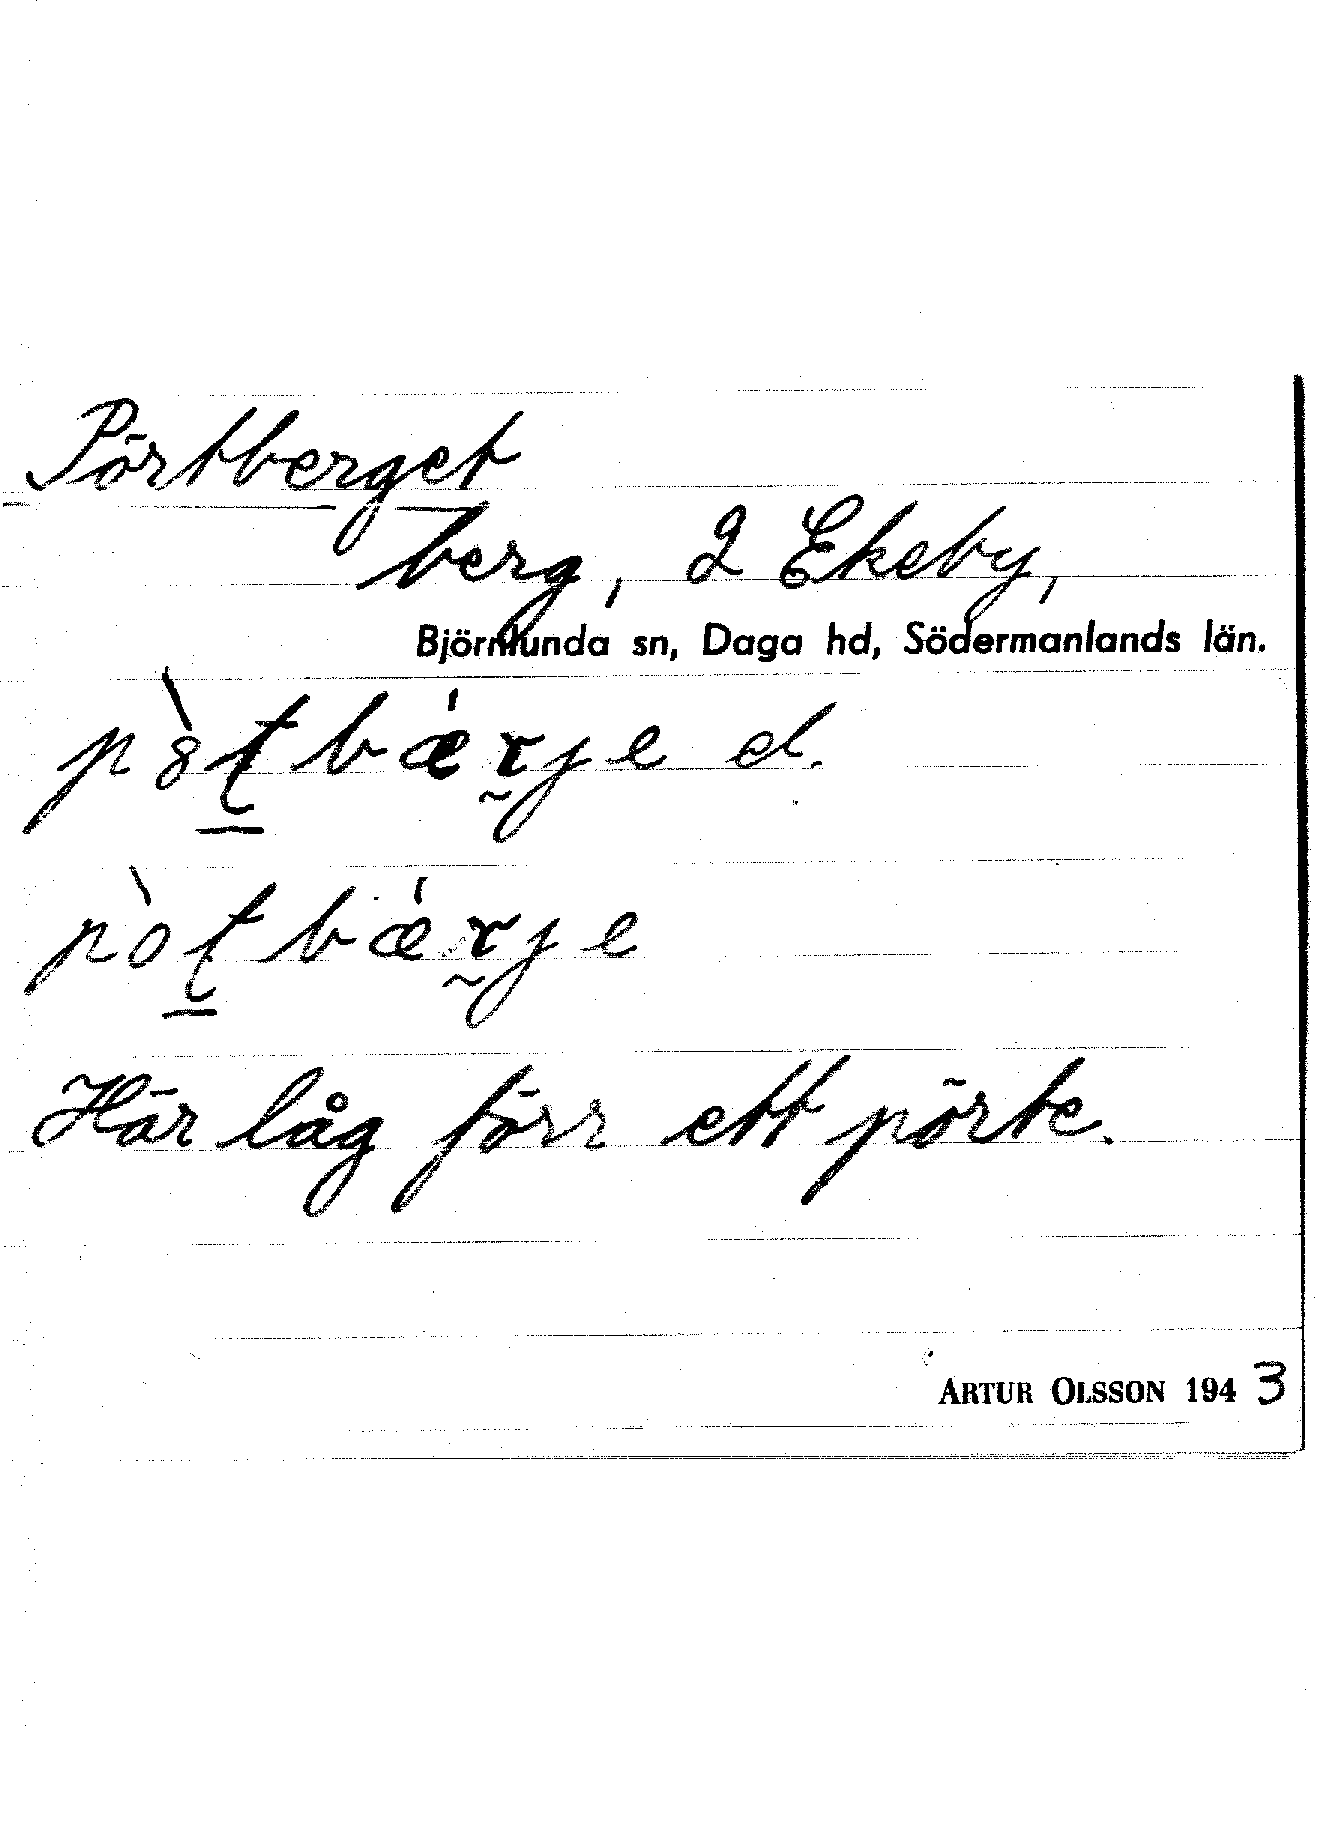 Pörtberget
berg, 2 Ekeby,
Björnlunda sn, Daga hd, Södermanlands län.
Här låg förr ett pörte.
ARTUR OLSSON 1943